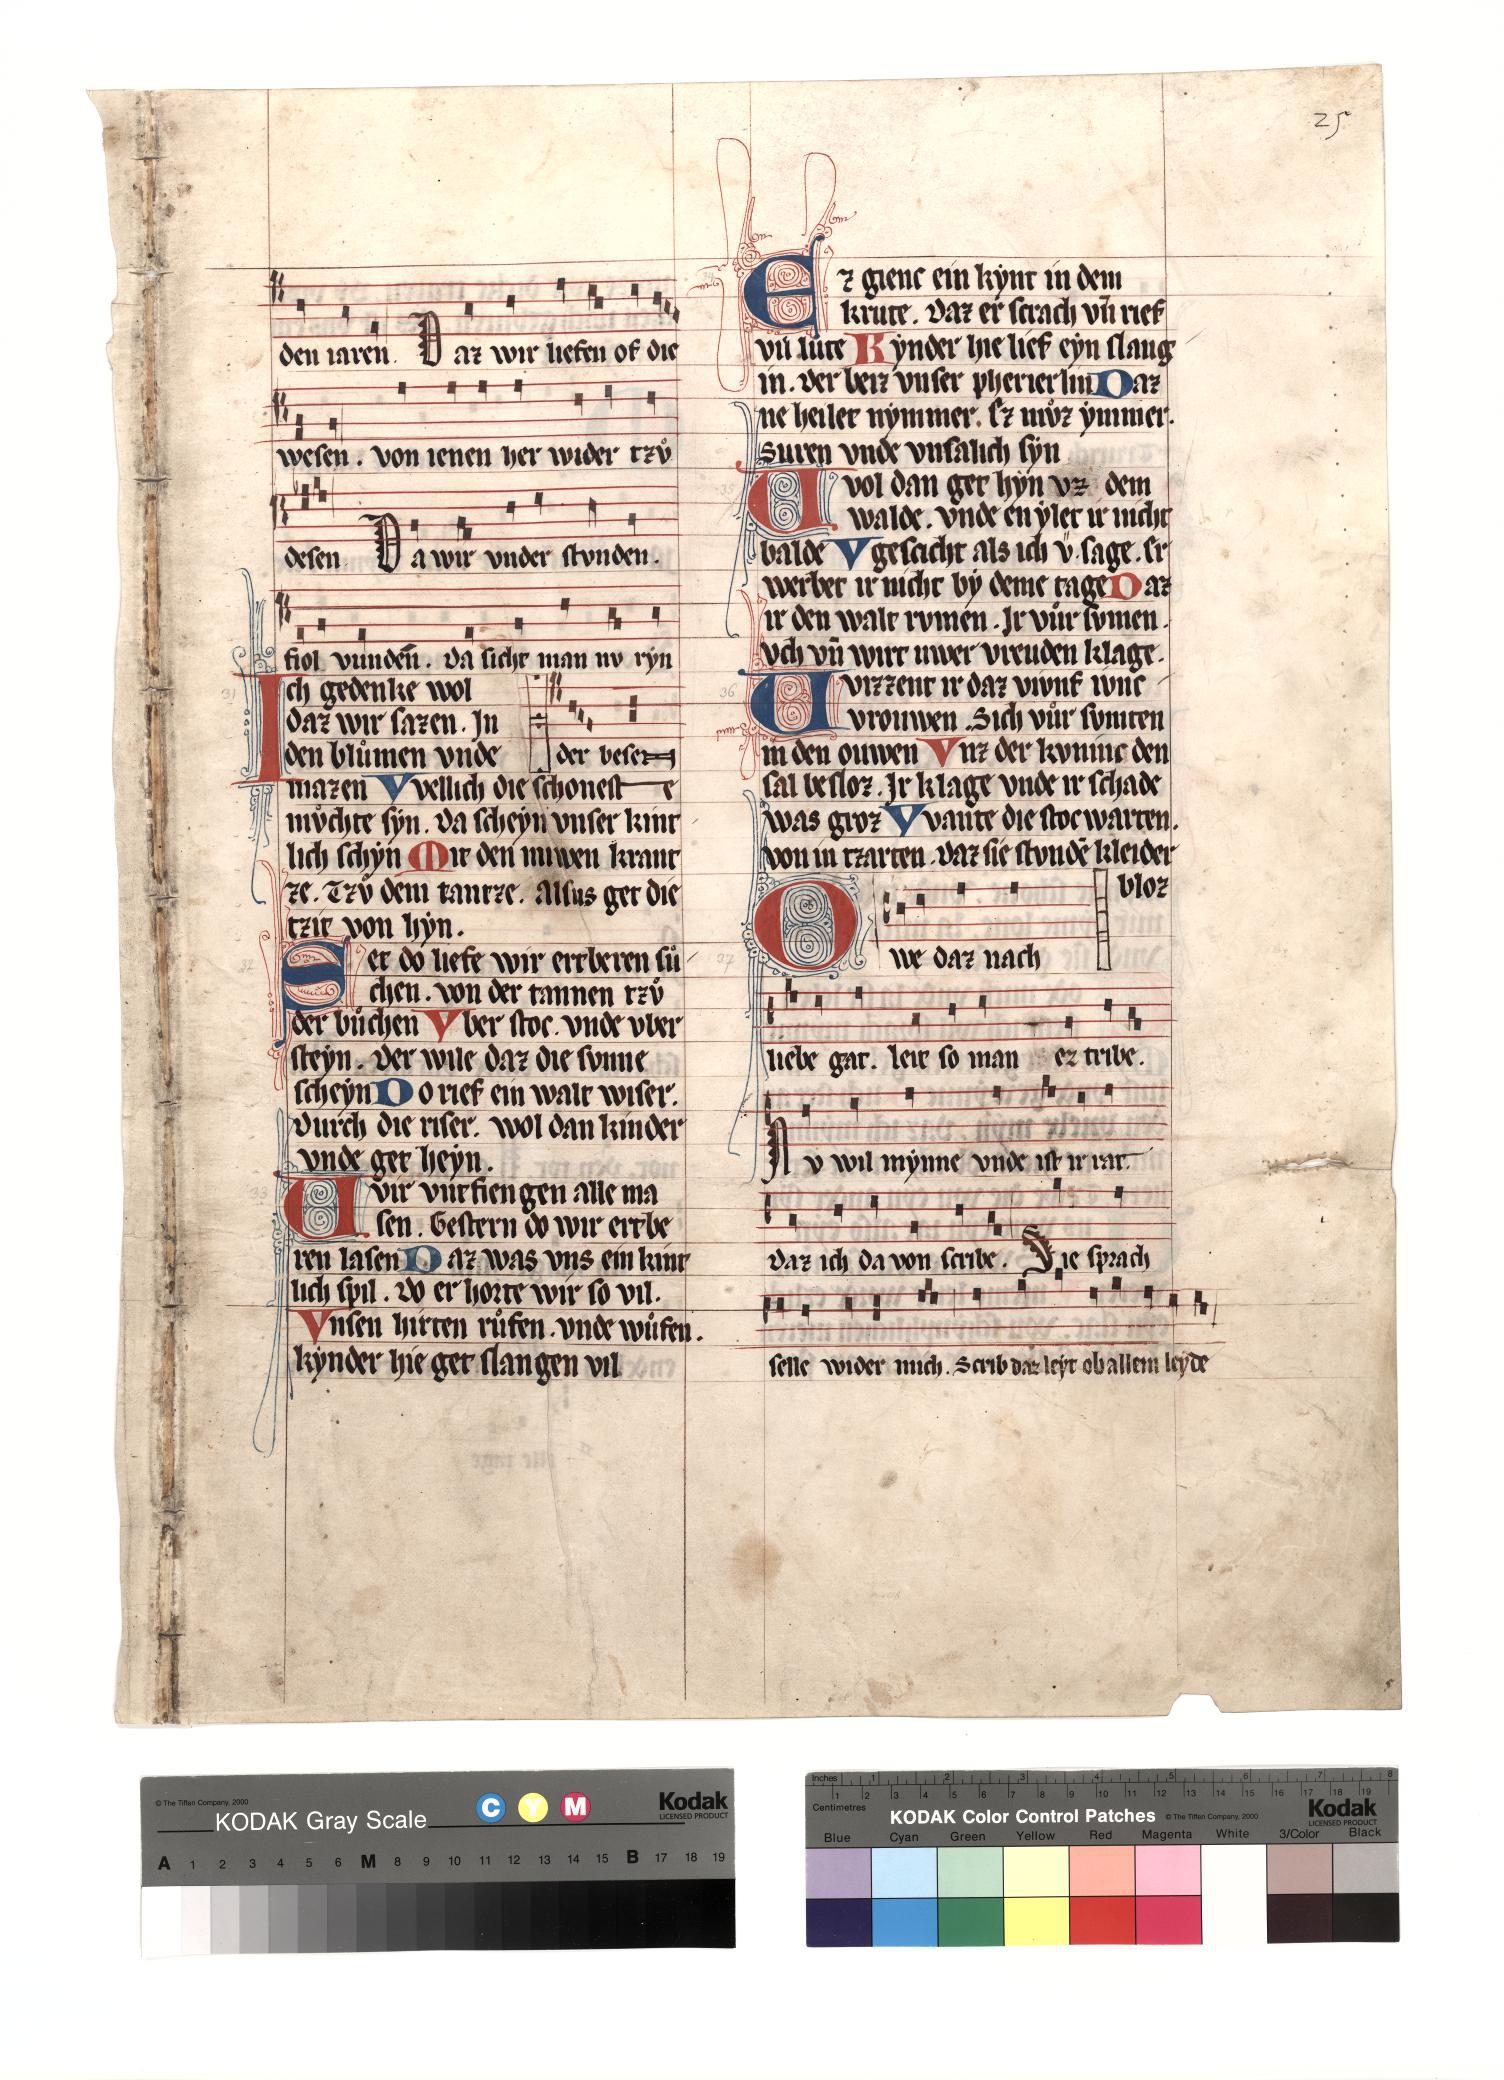 25
den iaren. Daz wir liefen of die
wesen. von ienen her wider tzů
desen Da wir vnder stvnden.
fiol vunden̄. da sicht man nv ryn
Ich gedenke wol
daz wir sazen. In
den blůmen vnde der besen
mazen Vvellich die schonest e
můchte syn. da scheyn vnser kint
lich schyn Mit den niwen krant
ze. Tzů dem tantze. alsus get die
tzit von hyn.
Set do liefe wir ertberen sů
chen. von der tannen tzů
der bůchen Vber stoc. vnde vber
steyn. der wile daz die svnne
scheyn Do rief ein walt wiser.
durch die riser. wol dan kinder
vnde get heyn.
Wir vntfiengen alle ma
sen. Gestern do wir ertbe
ren lasen Daz was vns ein kint
lich spil. do er horte wir so vil.
Vnsen hirten růfen. vnde wůfen.
kynder hie get slangen vil
Ez gienc ein kynt in dem
krute. daz er scrach vn̄ rief
vil lute Kynder hie lief eyn slang
in. der beiz vnser pherierlin Daz
ne heilet nymmer. ez můz ymmer.
suren vnde vnsalich syn
Wol dan get hyn vz dem
walde. vnde en ylet ir nicht
balde V gescicht als ich v̈. sage. er
werbet ir nicht by deme tage Daz
ir den walt rvmen. Ir vůr svmen.
vch vn̄ wirt uwer vreuden klage.
Wizzent ir daz vivnf ivnc
vrouwen Sich vůr svmten
in den ouwen Vnz der kvninc den
sal besloz. Ir klage vnde ir schade
was groz Vvante die stocwarten.
von in tzarten. daz sie stvndē kleider
bloz
Owe daz nach
liebe gat. leit so man ez tribe.
Nv wil mynne vnde ist ir rat.
daz ich da von scribe. Die sprach
selle wider mich. Scrib daz leyt ob allem leyde
31
32
33
34
35
36
37
© The Tiffen Company, 2000
KODAK Gray Scale C Y M Kodak
LICENSED PRODUCT
A 1 2 3 4 5 6 M 8 9 10 11 12 13 14 15 B 17 18 19
Inches 1 2 3 4 5 6 7 8
Centimetres 1 2 3 4 5 6 7 8 9 10 11 12 13 14 15 16 17 18 19
KODAK Color Control Patches © The Tiffen Company, 2000 Kodak
LICENSED PRODUCT
Blue Cyan Green Yellow Red Magenta White 3/Color Black